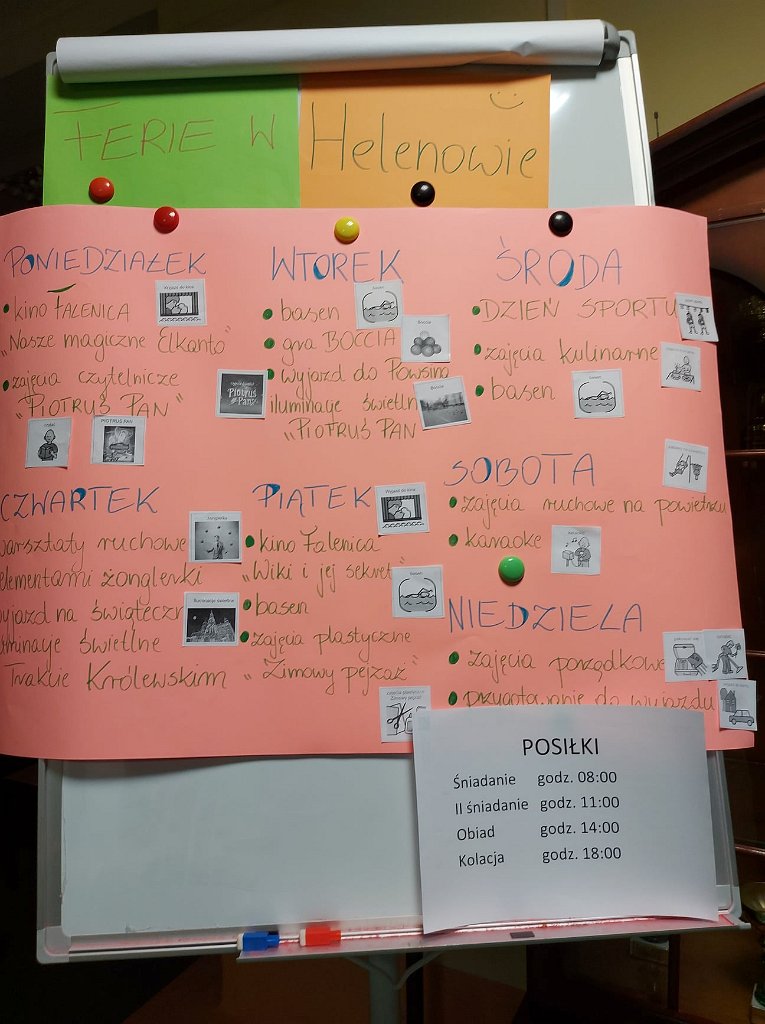 FERIE W Helenowie
PONIEDZIAŁEK
• kino FALENICA
Wyjazd do kina
"Nasze magiczne Elkanto"
• zajęcia czytelnicze
"PIOTRUŚ PAN"
Piotruś Pan
PIOTRUŚ PAN
WTOREK
• basen
basen
• gra BOCCIA
Boccia
• wyjazd do Powsina
iluminacje świetln
"PIOTRUŚ PAN
ŚRODA
• DZIEŃ SPORTU
• zajęcia kulinarne
• basen
basen
CZWARTEK
warsztaty ruchowe
elementami żonglerki
yjazd na świąteczn
uminacje świetlne
Trakcie Królewskim
Iluminacje świetlne
PIĄTEK
Wyjazd do kina
• kino Falenica
"Wiki i jej sekret
• basen
basen
• zajęcia plastyczne
"Zimowy pejzaż"
SOBOTA
• zajęcia ruchowe na powietrzu
• karaoke
karaoke
NIEDZIELA
• zajęcia porządkowe
• przygotowanie do wyjazdu
POSIŁKI
Śniadanie godz. 08:00
II śniadanie godz. 11:00
Obiad godz. 14:00
Kolacja godz. 18:00